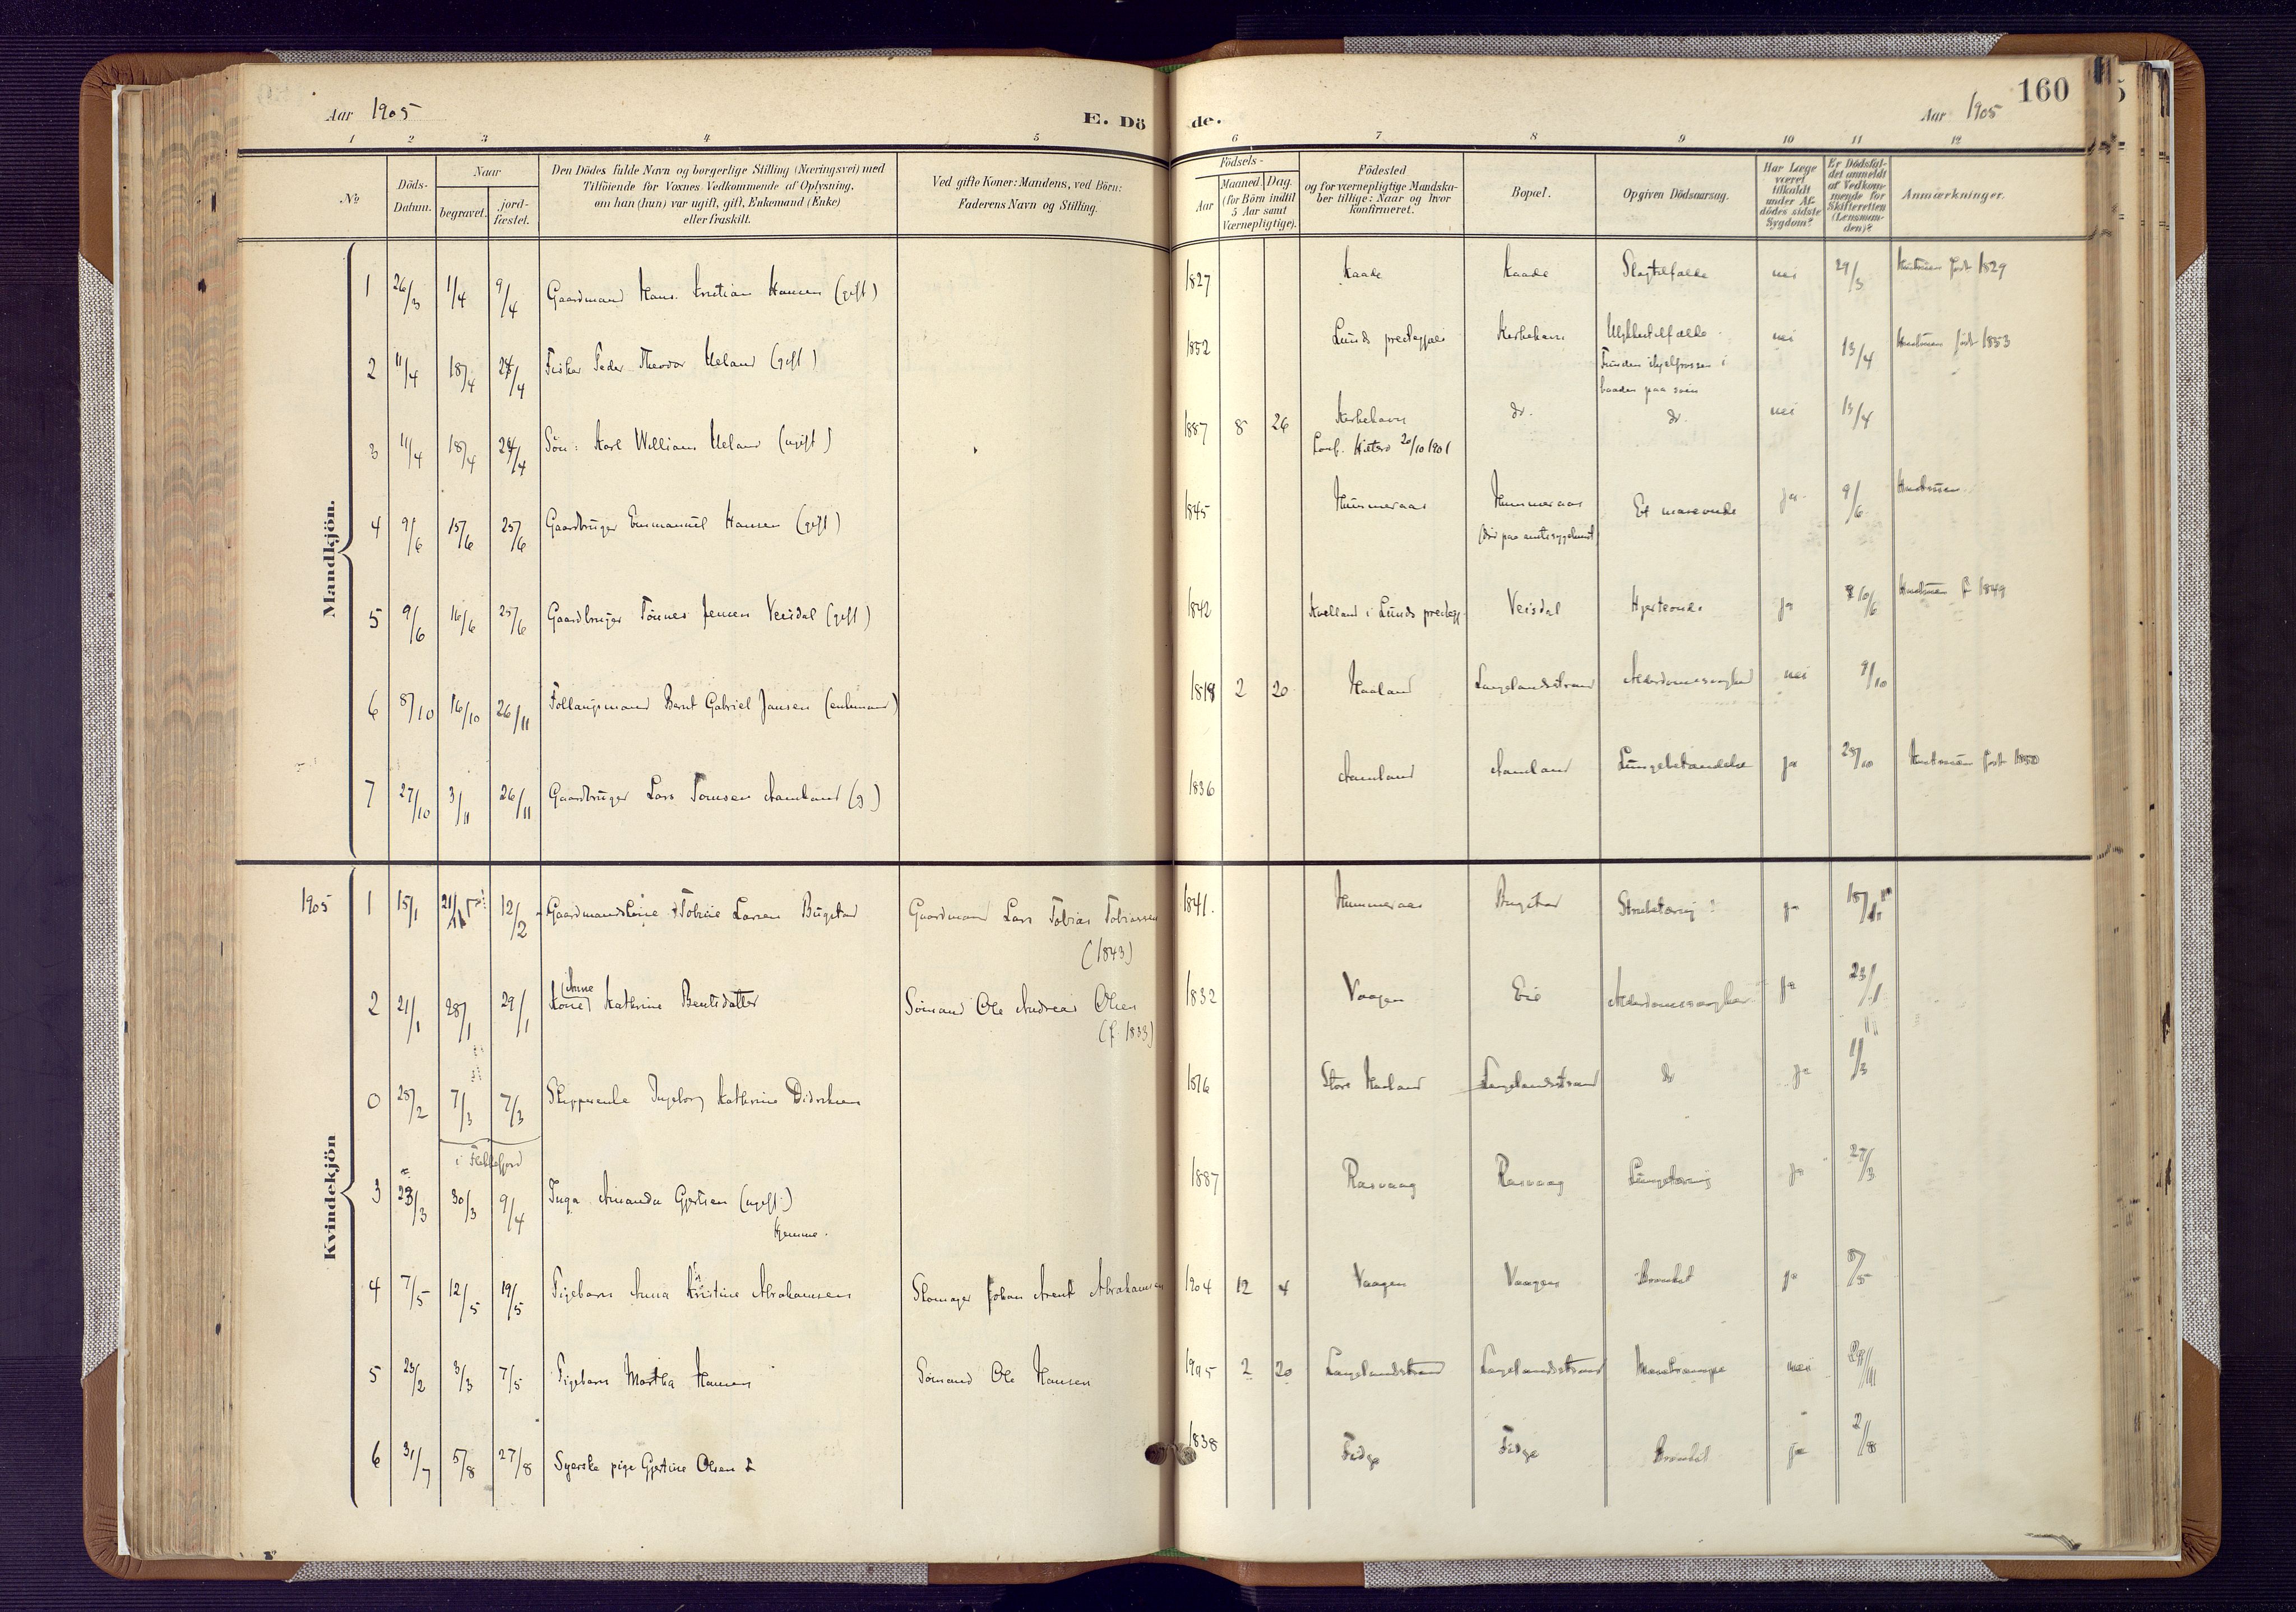 Aar 1905
E. Dö
de.
160
Aar 1905
1 2 3 4 5 6 7 8 9 10 11 12
No
Döds-
Datum.
Naar
begravet.
jord-
fæstet.
Den Dödes fulde Navn og borgerlige Stilling (Næringsvei) med
Tilföiende for Voxnes Vedkommende af Oplysning,
om han (hun) var ugift, gift, Enkemand (Enke)
eller fraskilt.
Ved gifte Koner: Mandens, ved Börn:
Faderens Navn og Stilling.
Födsels-
Aar
Maaned. Dag.
(for Börn indtil
5 Aar samt
Værnepligtige).
Födested
og for værnepligtige Mandska-
ber tillige: Naar og hvor
konfirmeret.
Bopæl.
Opgiven Dödsaarsag.
Har Læge
været
tilkaldt
under Af-
dödes sidste
Sygdom?
Er Dödsfal-
det anmeldt
af Vedkom-
mende for
Skifteretten
(Lensman-
den)?
Anmærkninger.
Mandkjön.
1 26/3 1/4 9/4 Gaardmand Hans Kristian Hansen (gift) 1827 Kaade Kaade Slagtilfælde nei 29/3 født 1829
2 11/4 18/4 24/4 Fisker Peder Theodor Ueland (gift) 1852 Lunds Kirkehavn nei 13/4 født 1853
Funden ihjelfrossen i
baaden paa
3 11/4 18/4 24/4 Søn: Karl William Ueland (ugift) 1887 8 26 Kirkehavn do. do. nei 13/4
Conf. Hitterø 20/10 1901
4 9/6 15/6 25/6 Gaardbruger Emmanuel Hansen (gift) 1845 Hummeraas Hummeraas ja 9/6
5 9/6 16/6 25/6 Gaardbruger Tønnes Jensen Veisdal (gift) 1842 Kvelland i Lunds Veisdal Hjerteonde ja 10/6 f 1849
6 8/10 16/10 26/11 Follaugsmand Bernt Gabriel Jansen (enkemand) 1818 2 20 Haaland Langelandsstrand Alderdomssvaghed nei 9/10
7 27/10 3/11 26/11 Gaardbruger Lars Tomsen Aamland (g.) 1836 Aamland Aamland Lungebetændelse ja født 1850
Kvindekjön
1905 1 15/1 21/1 12/2 Gaardmandskone Tobine Larsen Bugstad Gaardmand Lars Tobias Tobiassen 1841. Hummeraas Bugstad Strubetæring ja
(1843)
2 21/1 28/1 29/1 Kone Anne Kathrine Berntsdatter Sømand Ole Andreas Olsen 1832 Vaagen Eie Alderdomssvaghed ja 23/1
(f. 1833)
0 25/2 7/3 7/3 Skipperenke Ingeborg Kathrine Didriksen 1816 Store Haaland Langelandsstrand do ja 1/3
i Flekkefjord
3 23/3 30/3 9/4 Inga Amanda Gjertsen (ugift) 1887 Rasvaag Rasvaag Lungetæring ja 27/3
Hjemme.
4 7/5 12/5 19/5 Pigebarn Anna Kristine Abrahamsen Skomager Johan Arent Abrahamsen 1904 12 4 Vaagen Vaagen Bronkit ja 8/5
5 23/2 3/3 7/5 Pigebarn Martha Hansen Sømand Ole Hansen 1905 2 20 Langelandsstrand Langelandsstrand nei
6 31/7 5/8 27/8 Syerske pige Gjertine Olsen 1838 Fidge Fidge Bronkit ja 2/8